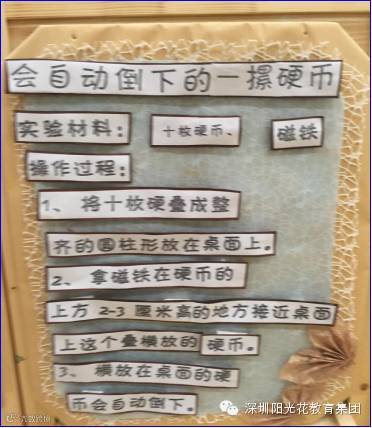 会自动倒下的一摞硬币
实验材料： 十枚硬币、 磁铁
操作过程：
1、 将十枚硬叠成整
齐的圆柱形放在桌面上。
2、 拿磁铁在硬币的
上方2-3厘米高的地方接近桌面
上这个叠横放的硬币。
3、 横放在桌面的硬
币会自动倒下。
深圳阳光花教育集团